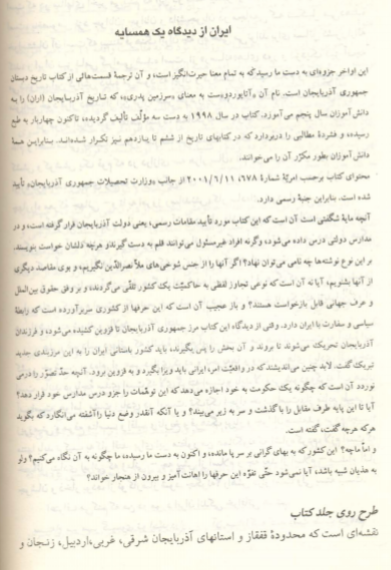 ایران از دیدگاه یک همسایه
این اواخر جزوه‌ای به دست ما رسید که به تمام معنا حیرت‌انگیز است، و آن ترجمهٔ قسمت‌هائی از کتاب تاریخ دبستان
جمهوری آذربایجان است. نام آن «آتایوردو» ست به معنای «سرزمین پدری»، که تاریخ آذربایجان (اران) را به
دانش‌آموزان سال پنجم می‌آموزد. کتاب در سال ۱۹۹۸ به دست سه مؤلف تألیف گردیده، تاکنون چهار بار به طبع
رسیده، و فشردهٔ مطالبی را دربر دارد که در کتابهای تاریخ از ششم تا یازدهم نیز تکرار شده‌اند. بنابراین همهٔ
دانش آموزان بطور مکرّر آن را می‌خوانند.
محتوای کتاب برحسب امریّهٔ شمارهٔ ۶۷۸، ۲۰۰۱/۶/۱۱ از جانب «وزارت تحصیلات جمهوری آذربایجان» تأیید
شده است. بنابراین جنبهٔ رسمی دارد.
آنچه مایهٔ شگفتی است آن است که این کتاب مورد تأیید مقامات رسمی، یعنی دولت آذربایجان قرار گرفته است، و در
مدارس دولتی درس داده می‌شود، وگرنه افراد غیرمسئول می‌توانند قلم به دست گیرند و هرچه دلشان خواست بنویسند.
بر این نوع نوشته‌ها چه نامی می‌توان نهاد؟ اگر آنها را از جنس شوخی‌های ملا نصرالدین نگیریم، و بوی مقاصد دیگری
از آنها بشنویم، آیا نه آن است که نوعی تجاوز لفظی به حاکمیّت یک کشور تلقّی می‌گردند، و بر وفق حقوق بین‌الملل
و عرف جهانی قابل بازخواست هستند؟ و باز عجیب آن است که این حرفها از کشوری سر برآورده است که رابطهٔ
سیاسی و سفارت با ایران دارد. وقتی از دیدگاه این کتاب مرز جمهوری آذربایجان تا قزوین کشیده می‌شود، و فرزندان
آذربایجان تحریک می‌شوند تا بروند و آن بخش را پس بگیرند، باید کشور باستانی ایران را به این مرزبندی جدید
تبریک گفت. لابد چنین می‌اندیشند که در واقعیّت امر، ایرانی باید ویزا بگیرد و به قزوین برود. آنچه حدّ تصوّر را درمی
نوردد آن است که چگونه یک حکومت به خود اجازه می‌دهد که این توهّمات را جزو درس مدارس خود قرار دهد؟
آیا تا این پایه طرف مقابل را باگذشت و سر به زیر می‌بیند؟ و یا آنکه آنقدر وضع دنیا را آشفته می‌انگارد که بگوید
هرکه هرچه گفت، گفته است.
و امّا ما چه؟ این کشور که به بهای گرانی بر سر پا مانده، و اکنون به دست ما رسیده، ما چگونه به آن نگاه می‌کنیم؟ ولو
به هذیان شبیه باشد، آیا نمی‌شود حتّی تفوّه این حرفها را اهانت‌آمیز و بیرون از هنجار خواند؟
طرح روی جلد کتاب
نقشه‌ای است که محدودهٔ قفقاز و استانهای آذربایجان شرقی، غربی، اردبیل، زنجان و